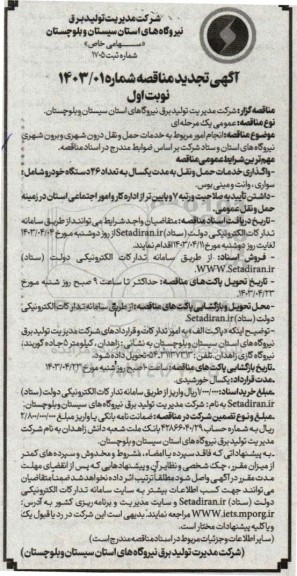 شرکت مدیریت تولید برق
نیروگاه های استان سیستان و بلوچستان
«سهامی خاص»
شماره ثبت ۱۷۰۵
آگهی تجدید مناقصه شماره ۱۴۰۳/۰۱
نوبت اول
مناقصه گزار: شرکت مدیریت تولید برق نیروگاهای استان سیستان وبلوچستان.
نوع مناقصه: عمومی یک مرحله ای
موضوع مناقصه: انجام امور مربوط به خدمات حمل ونقل درون شهری وبرون شهری
نیروگاه های استان و ستاد شرکت بر اساس ضوابط مندرج در اسناد مناقصه.
مهم ترین شرایط عمومی مناقصه
-واگذاری خدمات حمل ونقل به مدت یکسال به تعداد ۲۶ دستگاه خودرو شامل:
سواری، وانت و مینی بوس.
-داشتن تاییدیه صلاحیت ورتبه ۷ و پایین تر از اداره کار و امور اجتماعی استان در زمینه
حمل ونقل عمومی.
-تاریخ دریافت اسناد مناقصه: متقاضیان واجد شرایط می توانند از طریق سامانه
تدارکات الکترونیکی دولت (ستاد) Setadiran.ir از روز دوشنبه مورخ ۱۴۰۳/۰۴/۰۴
لغایت روز دوشنبه مورخ ۱۴۰۳/۰۴/۱۱ اقدام نمایند.
- فروش اسناد: از طریق سامانه تدارکات الکترونیکی دولت (ستاد)
WWW.Setadiran.ir.
-تاریخ تحویل پاکت های مناقصه: حداکثر تا ساعت ۹ صبح روز شنبه مورخ
۱۴۰۳/۰۴/۲۳.
-محل تحویل و بازگشایی پاکت های مناقصه: از طریق سامانه تدارکات الکترونیکی
دولت (ستاد) Setadiran.ir.
-توضیح اینکه «پاکت الف» به امور تدارکات و قراردادهای شرکت مدیریت تولید برق
نیروگاه های استان سیستان وبلوچستان به نشانی: زاهدان، کیلومتر ۵ جاده کوربند،
نیروگاه گازی زاهدان. تلفن: تحویل داده شود.
-تاریخ بازگشایی پاکت های مناقصه: ساعت صبح روز شنبه مورخ ۱۴۰۳/۰۴/۲۳
-مدت قرارداد: یکسال خورشیدی.
-مبلغ خرید اسناد: ریال واریز از طریق سامانه تدارکات الکترونیکی دولت (ستاد)
Setadiran.ir به نام : شرکت مدیریت تولید برق نیروگاه های سیستان وبلوچستان.
-مبلغ و نوع تضمین شرکت در مناقصه: ضمانت نامه بانکی یا واریز مبلغ
ریال به شماره حساب بانک ملت شعبه دانش زاهدان به نام شرکت
مدیریت تولید برق نیروگاه های استان سیستان وبلوچستان.
-به پیشنهاداتی که فاقد سپرده یا امضاء، مشروط و مخدوش و سپرده های کمتر
از میزان مقرر، چک شخصی و نظایر آن و پیشنهادهایی که پس از انقضای مهلت
مدت مقرر در آگهی واصل شود مطلقا ترتیب اثر داده نخواهد شد ضمنا متقاضیان
می توانند جهت کسب اطلاعات بیشتر به سایت سامانه تدارکات الکترونیکی
دولت (ستاد) Setadiran.ir و سایت مدیریت و برنامه ریزی کشور به آدرس:
WWW.iets.mporg.ir مراجعه نمایند. بدیهی است این شرکت در رد یا قبول یک
و یا کلیه پیشنهادات مختار است.
(سایر اطلاعات و جزئیات مربوط در اسناد مناقصه مندرج است)
(شرکت مدیریت تولید برق نیروگاه های استان سیستان وبلوچستان)